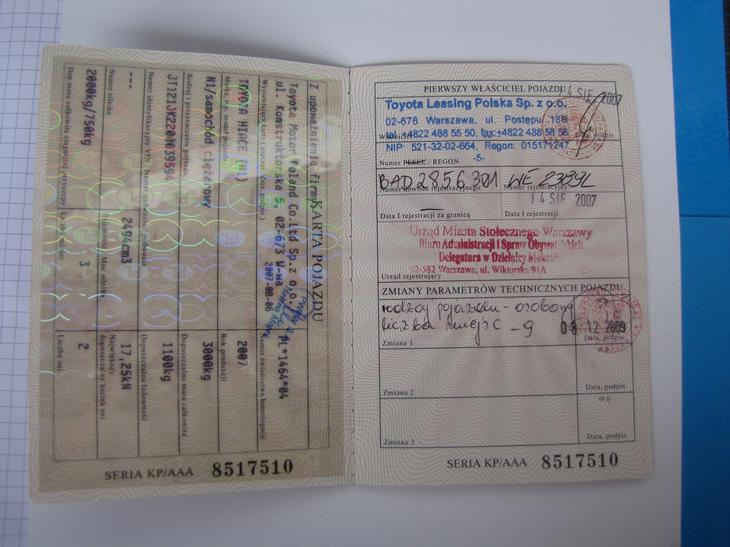 KARTA POJAZDU
Z upoważnienia firmy
Toyota Motor Poland Co.Ltd Sp.z o.o.
ul. Konstruktorska 5, 02-673 W-wa
2007-08-06
PL*1464*04
Numer świadectwa homologacji
TOYOTA HIACE (H1)
2007
Marka, typ, model pojazdu
Rok produkcji
N1/samochód ciężarowy
3000kg
Rodzaj i przeznaczenie pojazdu
Dopuszczalna masa całkowita
JT121JK2200039594
1100kg
Dopuszczalna ładowność
---
2494cm3
17,25kN
Numer silnika
Moc silnika
Największy dopuszczalny nacisk osi
2000kg/750kg
3
2
Liczba osi
SERIA KP/AAA 8517510
PIERWSZY WŁAŚCICIEL POJAZDU
14 SIE 2007
Toyota Leasing Polska Sp. z o.o.
02-676 Warszawa, ul. Postępu 18B
tel.+4822 488 55 50, fax:+4822 488 58 58
NIP 521-32-02-664, Regon: 015171247
-5-
Numer PESEL / REGON
BAD2856301 WE 2399L
Numer rejestracyjny
14 SIE 2007
Data I rejestracji za granicą
Data I rejestracji
Urząd Miasta Stołecznego Warszawy
Biuro Administracji i Spraw Obywatelskich
Delegatura w Dzielnicy Mokotów
02-582 Warszawa, ul. Wiktorska 91A
Urząd rejestrujący
ZMIANY PARAMETRÓW TECHNICZNYCH POJAZDU
rodzaj pojazdu - osobowy
liczba miejsc - 9
08 12 2009
Zmiana 1
Data, podpis
Zmiana 2
Data, podpis
m.p.
Zmiana 3
Data, podpis
SERIA KP/AAA 8517510